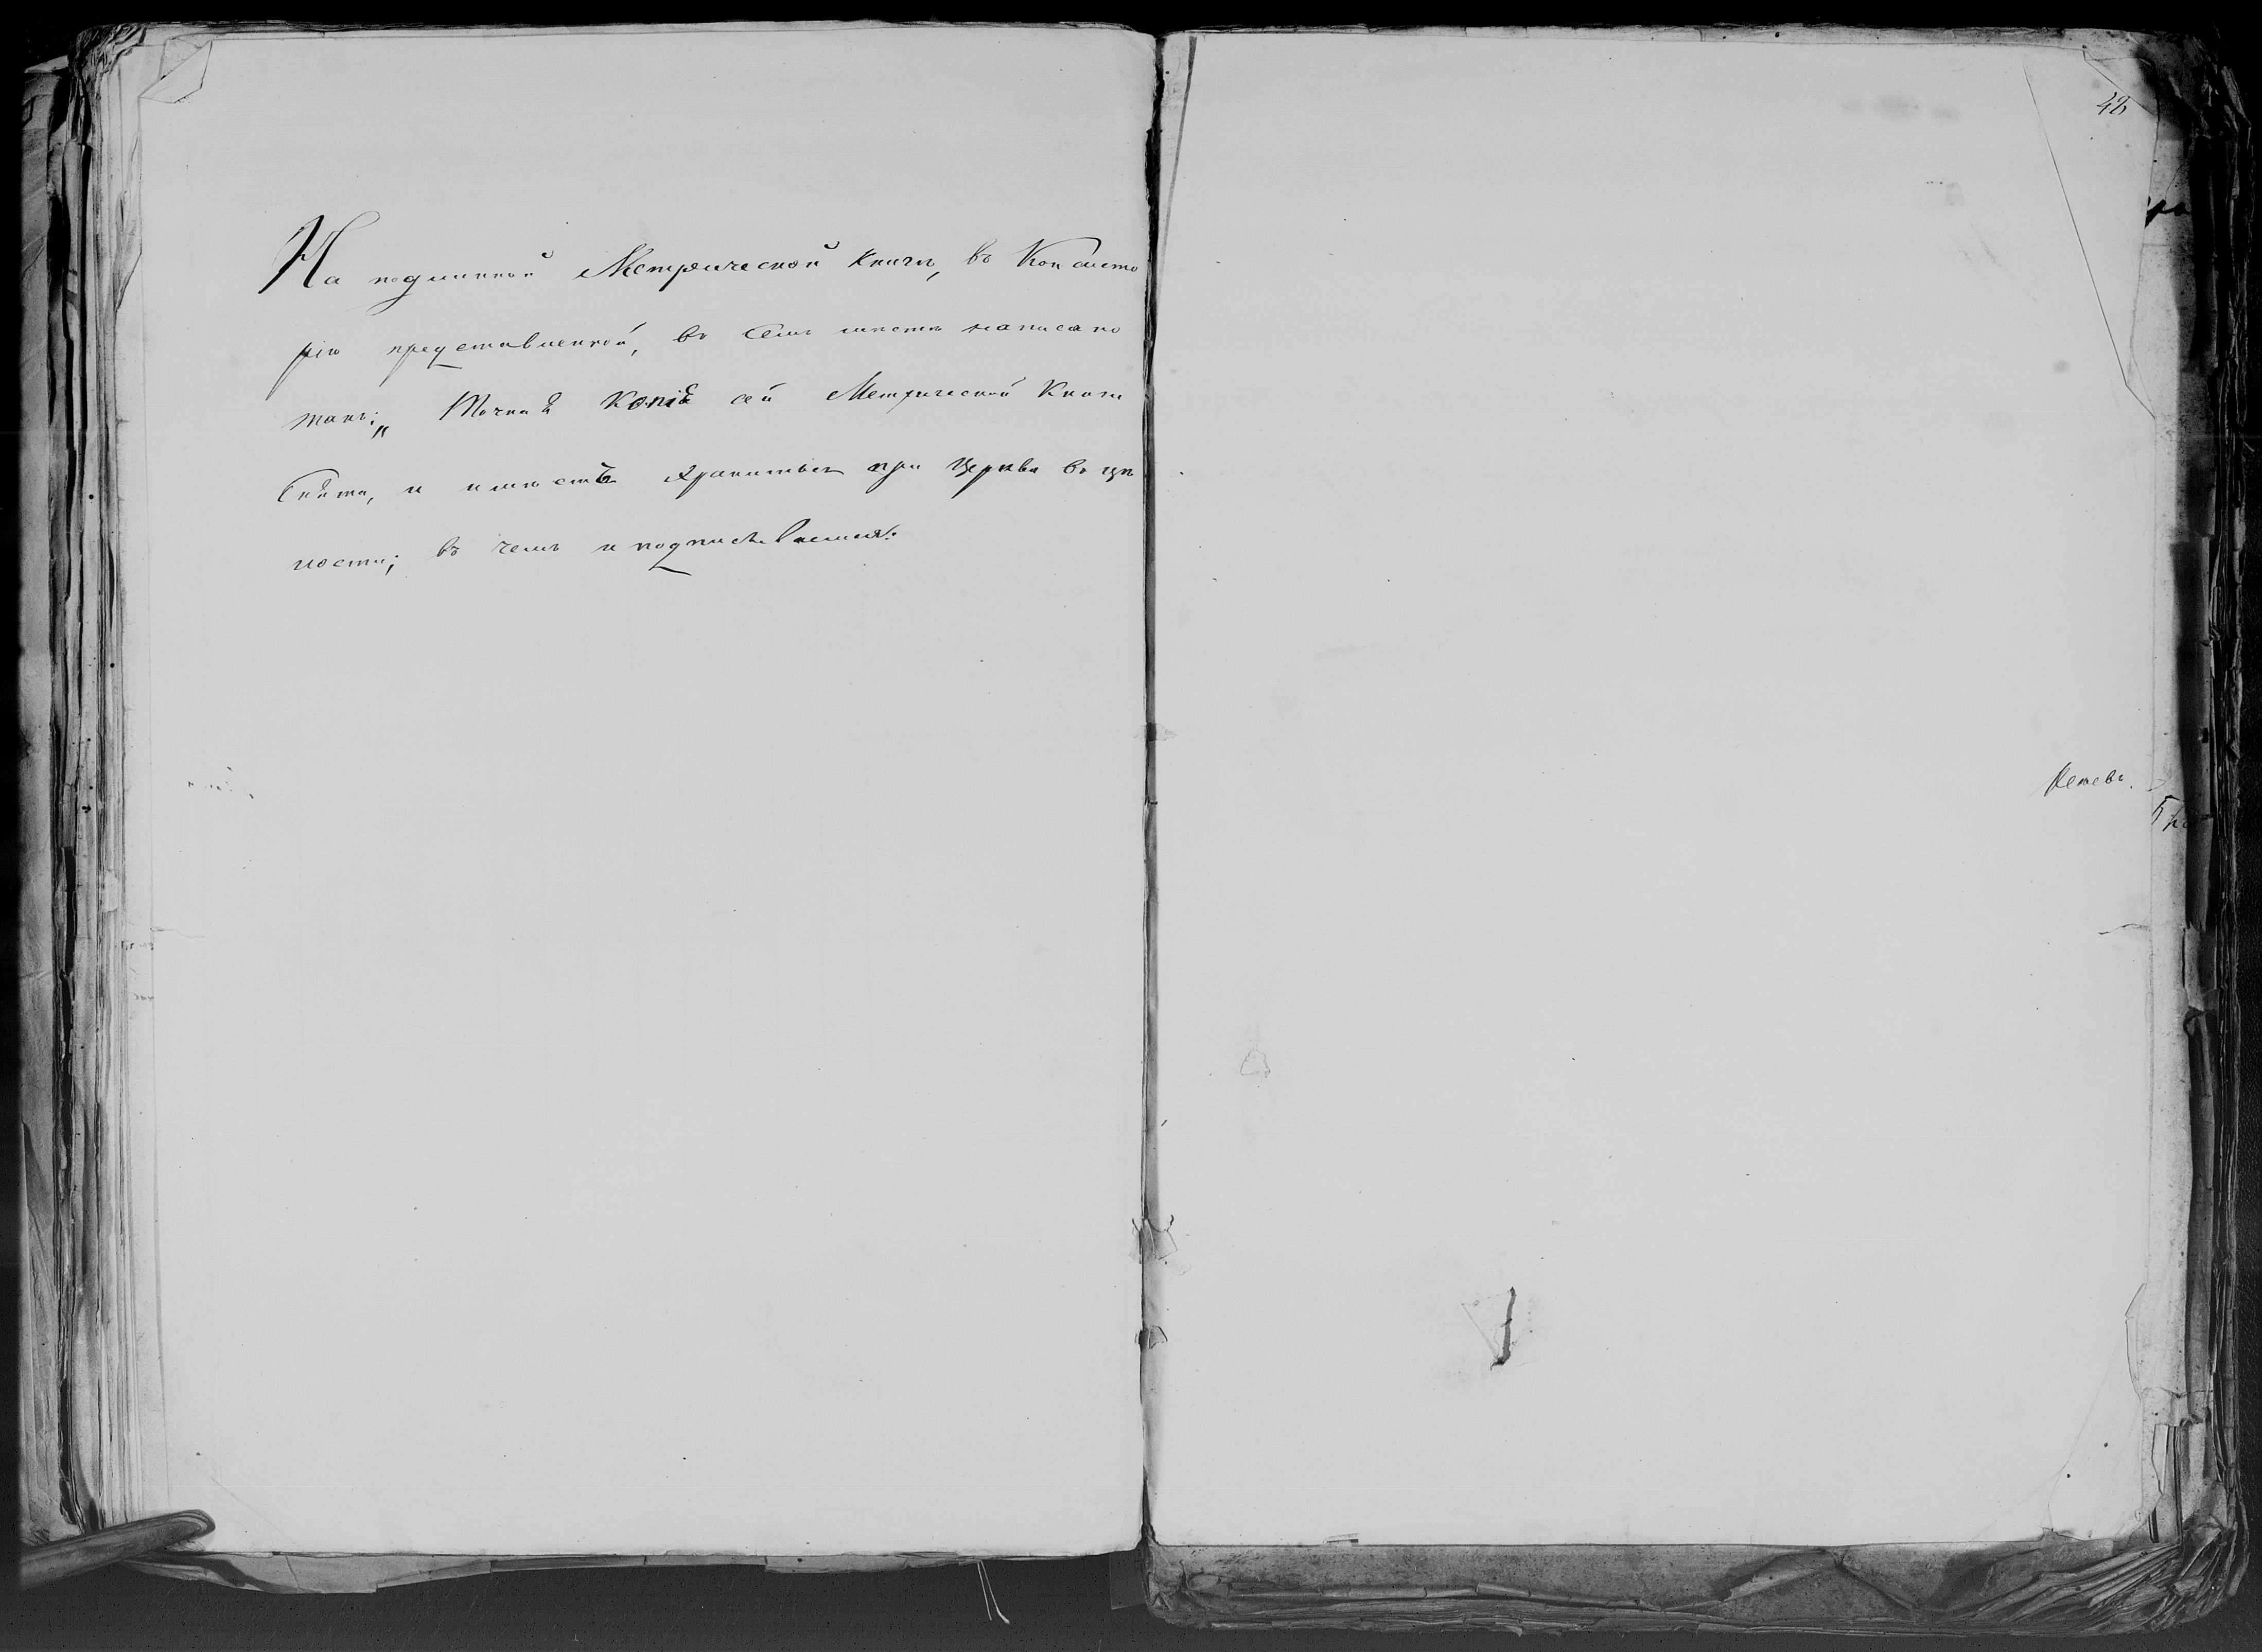 На подлинной Метрической книгѣ, въ Консисто
рію представленной, въ семъ мѣстѣ написано
такъ: „ Точная Копія сей Метрической Книги
снята, и имѣетъ храниться при Церкви въ цѣ
лости; въ чемъ и подписываемся:
42